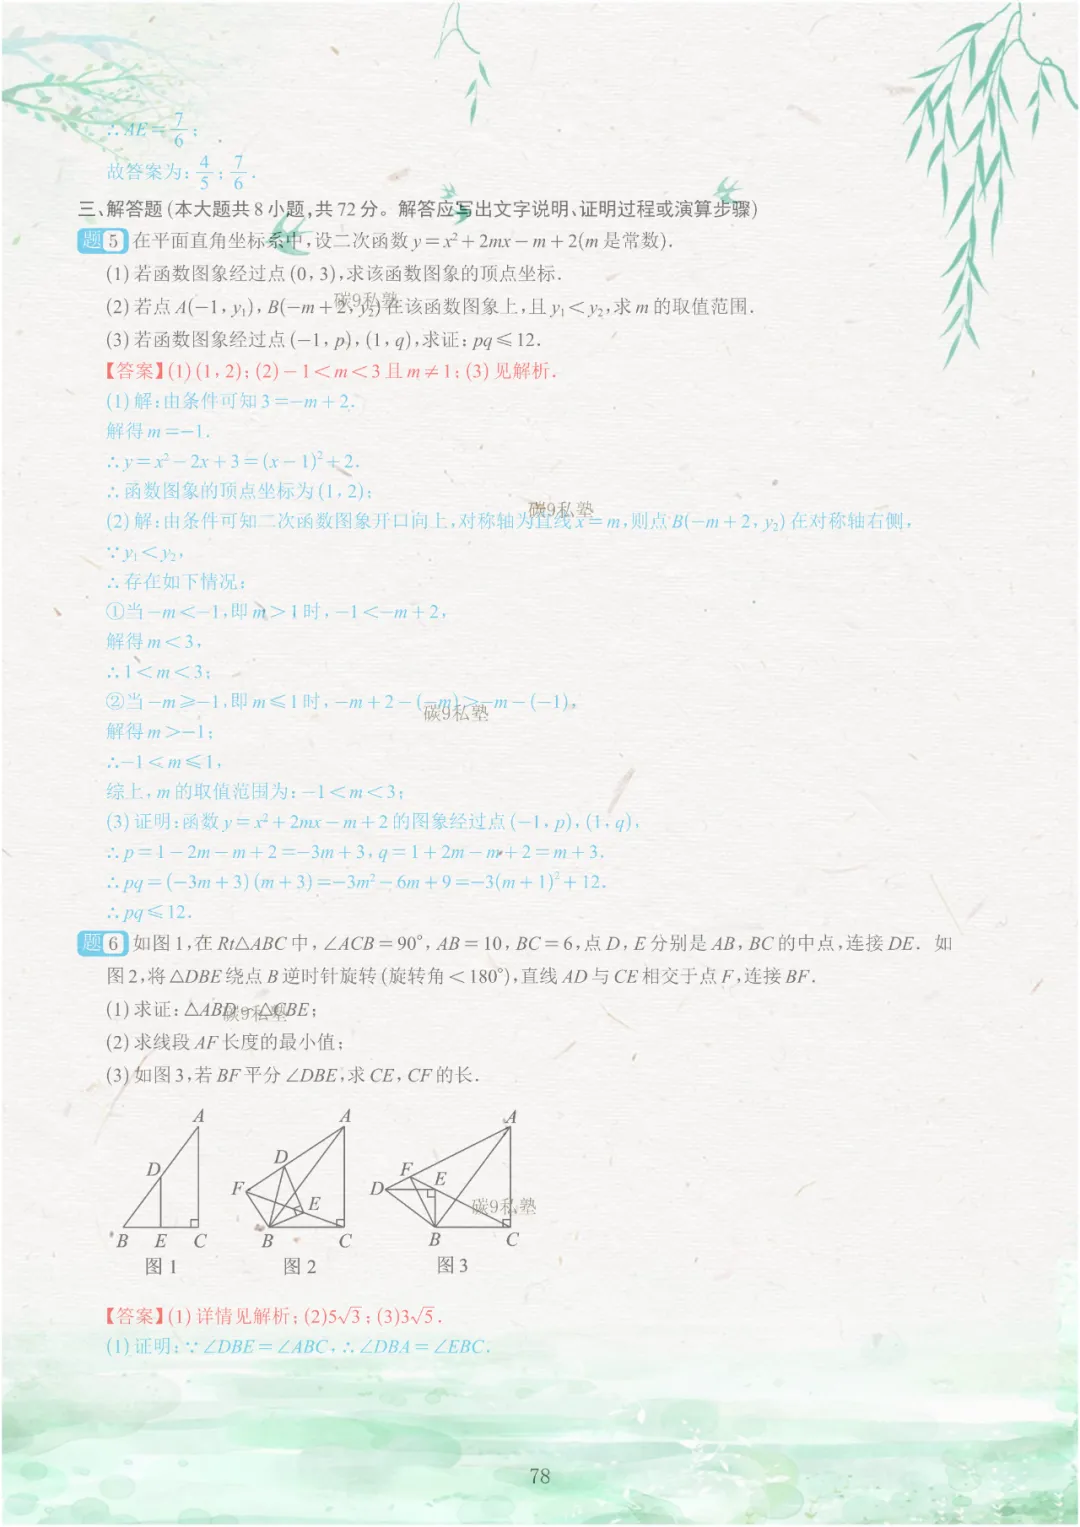 ∴AE=7/6;
故答案为:4/5;7/6.
三、解答题(本大题共8小题,共72分。解答应写出文字说明、证明过程或演算步骤)
题5 在平面直角坐标系中,设二次函数y=x²+2mx-m+2(m是常数).
(1)若函数图象经过点(0,3),求该函数图象的顶点坐标.
(2)若点A(-1,y₁),B(-m+2,y₂)在该函数图象上,且y₁<y₂,求m的取值范围.
碳9私塾
(3)若函数图象经过点(-1,p),(1,q),求证:pq≤12.
【答案】(1)(1,2);(2)-1<m<3且m≠1;(3)见解析.
(1)解:由条件可知3=-m+2.
解得m=-1.
∴y=x²-2x+3=(x-1)²+2.
∴函数图象的顶点坐标为(1,2);
碳9私塾
(2)解:由条件可知二次函数图象开口向上,对称轴为直线x=m,则点B(-m+2,y₂)在对称轴右侧,
∵y₁<y₂,
∴存在如下情况:
①当-m<-1,即m>1时,-1<-m+2,
解得m<3,
∴1<m<3;
②当-m≥-1,即m≤1时,-m+2-(-m)>-m-(-1),
碳9私塾
解得m>-1;
∴-1<m≤1,
综上,m的取值范围为:-1<m<3;
(3)证明:函数y=x²+2mx-m+2的图象经过点(-1,p),(1,q),
∴p=1-2m-m+2=-3m+3,q=1+2m-m+2=m+3.
∴pq=(-3m+3)(m+3)=-3m²-6m+9=-3(m+1)²+12.
∴pq≤12.
题6 如图1,在Rt△ABC中,∠ACB=90°,AB=10,BC=6,点D,E分别是AB,BC的中点,连接DE. 如
图2,将△DBE绕点B逆时针旋转(旋转角<180°),直线AD与CE相交于点F,连接BF.
(1)求证:△ABD∽△CBE;
碳9私塾
(2)求线段AF长度的最小值;
(3)如图3,若BF平分∠DBE,求CE,CF的长.
A
D
B E C
图1
A
D
F
E
B C
图2
A
F
E
D
B C
图3
碳9私塾
【答案】(1)详情见解析;(2)5√3;(3)3√5.
(1)证明:∵∠DBE=∠ABC,∴∠DBA=∠EBC.
78